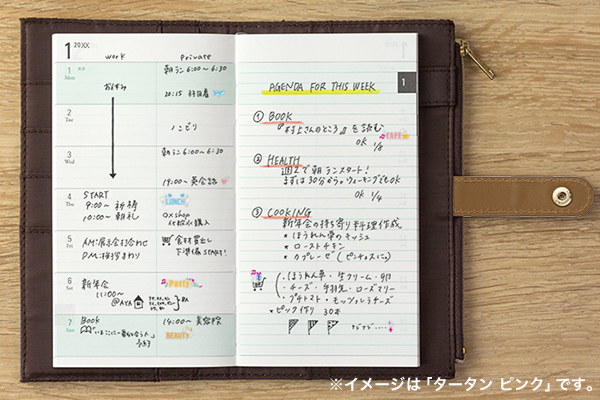 1 20XX
work
Private
1
Mon
おやすみ
朝ラン 6:00〜6:30
20:15 羽田着
2
Tue
3
Wed
朝ラン 6:00〜6:30
19:00〜英会話
4
Thu
START
9:00〜 祈祷
10:00〜 朝礼
LUNCH
5
Fri
食材買出し
下準備START!
6
Sat
新年会
11:00〜
@AYA
Party
7
Sun
BOOK
14:00〜 美容院
BEAUTY
AGENDA FOR THIS WEEK
1
① BOOK
『村上さんのところ』を読む
OK 1/8
CAFE
② HEALTH
週2で朝ランスタート!
まずは30分から。ウォーキングでもOK
OK 1/4
③ COOKING
新年会の持ち寄り料理作成
* ほうれん草のキッシュ
* ローストチキン
* カプレーゼ(ピンチョスに)
・ほうれん草・生クリーム・卵
・チーズ・手羽先・ローズマリー
・プチトマト・モッツァレラチーズ
* ピック作り 30本
※イメージは「タータン ピンク」です。